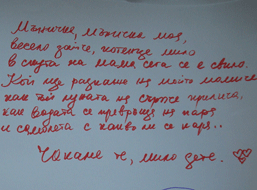 Мъничко, мъничко мое,
весело зайче, котенце мило
в скута на мама сега се е свило.
Кой ще разкаже на моето мъниче
как той луната на сърце прилича,
как водата се превръща на пара
и самолета с какво ли се кара..
Чакаме те, мило дете.